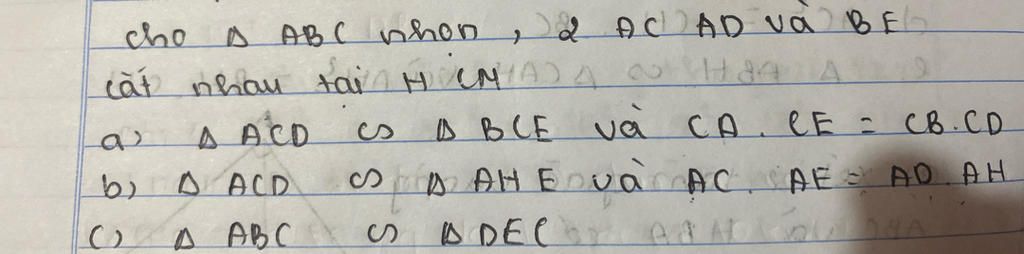 cho Δ ABC nhọn, 2 AC AD và BE
cắt nhau tại H CM
a) Δ ACD ∽ Δ BCE và CA . CE = CB . CD
b) Δ ACD ∽ Δ AHE và AC . AE = AD . AH
c) Δ ABC ∽ Δ DEC